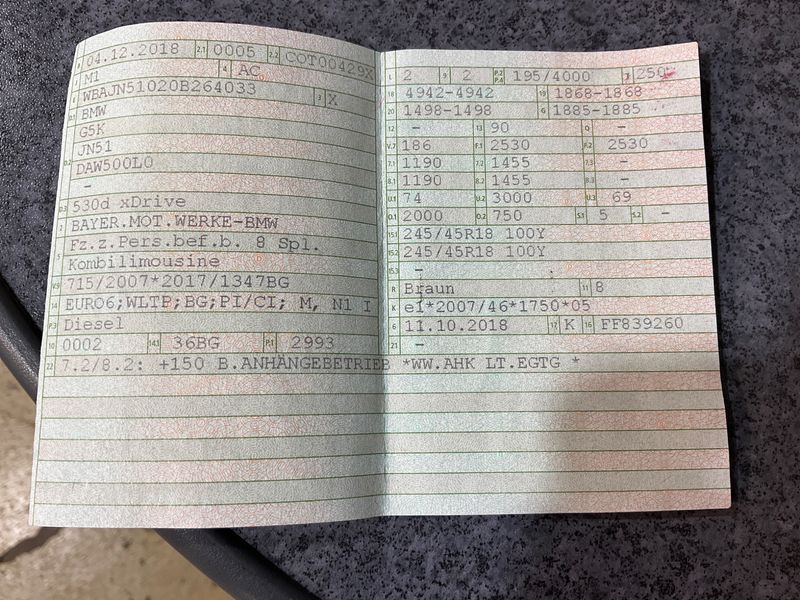 04.12.2018 2.1 0005 2.2 COT00429X
M1 4 AC
WBAJN51020B264033 3 X
BMW
G5K
JN51
DAW500L0
-
530d xDrive
BAYER.MOT.WERKE-BMW
Fz.z.Pers.bef.b. 8 Spl.
Kombilimousine
715/2007*2017/1347BG
EURO6;WLTP;BG;PI/CI; M, N1 I
P.3 Diesel
10 0002 14.1 36BG P.1 2993
22 7.2/8.2: +150 B.ANHÄNGEBETRIEB *WW.AHK LT.EGTG *
L 2 9 2 P.2 P.4 195/4000 T 250
18 4942-4942 19 1868-1868
20 1498-1498 G 1885-1885
12 - 13 90 Q -
V.7 186 F.1 2530 F.2 2530
7.1 1190 7.2 1455 7.3 -
8.1 1190 8.2 1455 8.3 -
U.1 74 U.2 3000 U.3 69
O.1 2000 O.2 750 S.1 5 S.2 -
15.1 245/45R18 100Y
15.2 245/45R18 100Y
15.3 -
R Braun 11 8
K e1*2007/46*1750*05
6 11.10.2018 17 K 16 FF839260
21 -